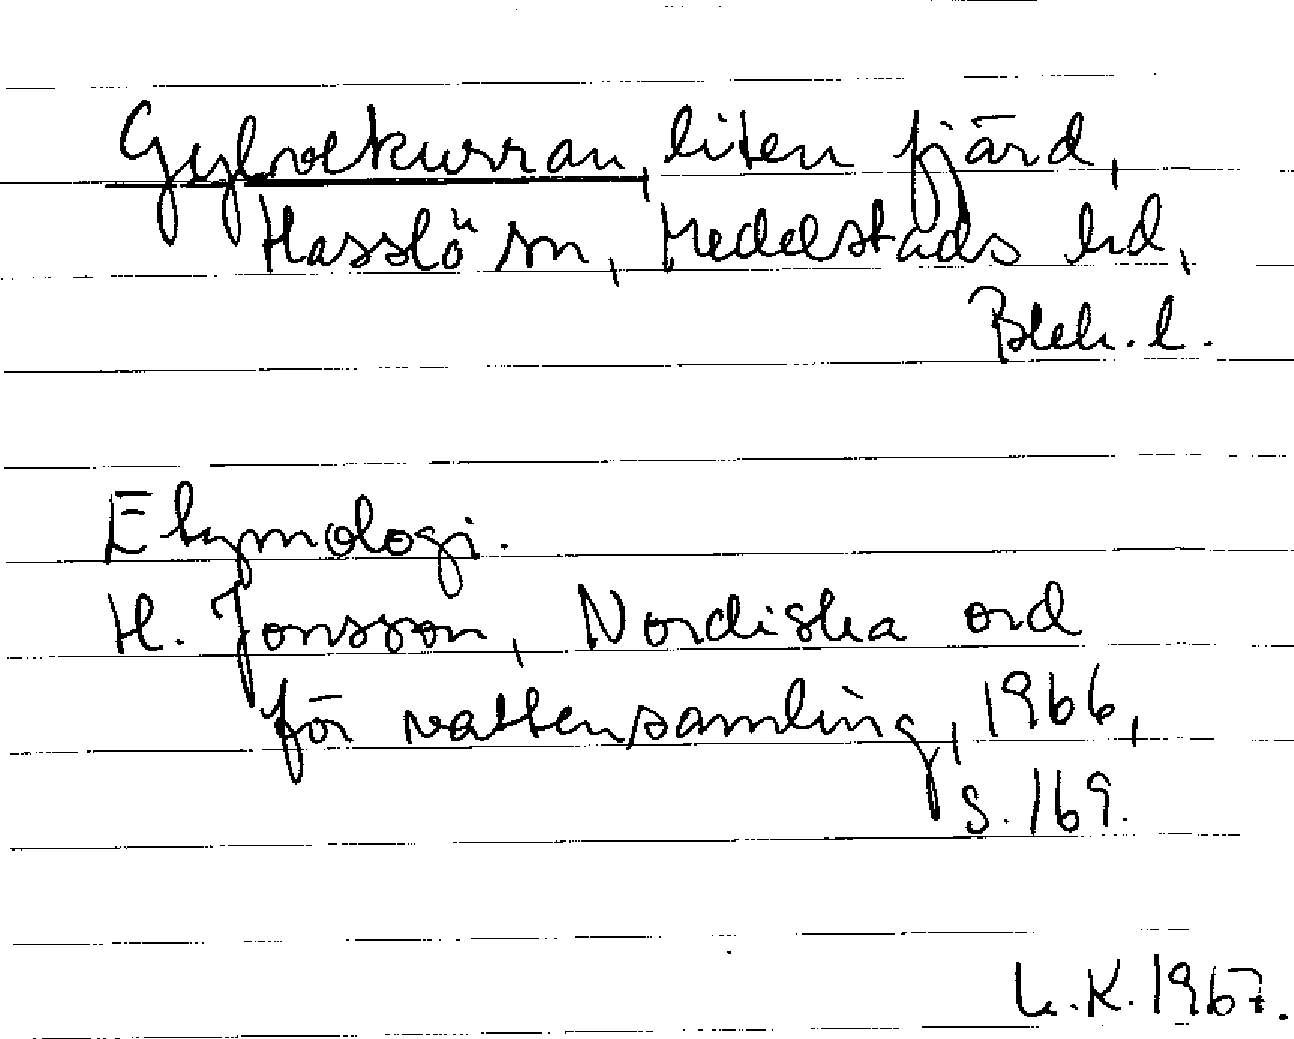 Gylvekurran, liten fjärd,
Hasslö sn, Medelstads hd,
Blek. l.
Etymologi.
H. Jonsson, Nordiska ord
för vattensamling, 1966,
s. 169.
L. K. 1967.